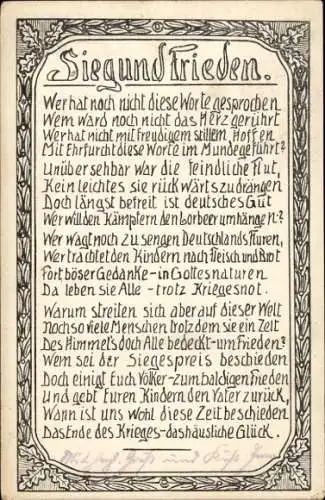 Sieg und Frieden.
Wer hat noch nicht diese Worte gesprochen
Wem ward noch nicht das Herz gerührt
Wer hat nicht mit freudigem stillem Hoffen
Mit Ehrfurcht diese Worte im Munde geführt?
Unübersehbar war die feindliche Flut,
Kein leichtes sie rückwärts zu drängen
Doch längst befreit ist deutsches Gut
Wer will den Kämpfern den Lorbeer umhängen?
Wer wagt noch zu sengen Deutschlands Fluren,
Wer trachtet den Kindern nach Fleisch und Blut
Fort böser Gedanke - in Gottesnaturen
Da leben sie Alle - trotz Kriegesnot.
Warum streiten sich aber auf dieser Welt
Noch so viele Menschen trotzdem sie ein Zelt
Des Himmels doch Alle bedeckt - um Frieden?
Wem sei der Siegespreis beschieden
Doch einigt Euch Völker - zum baldigen Frieden
Und gebt Euren Kindern den Vater zurück,
Wann ist uns wohl diese Zeit beschieden
Das Ende des Krieges - das häusliche Glück.
und